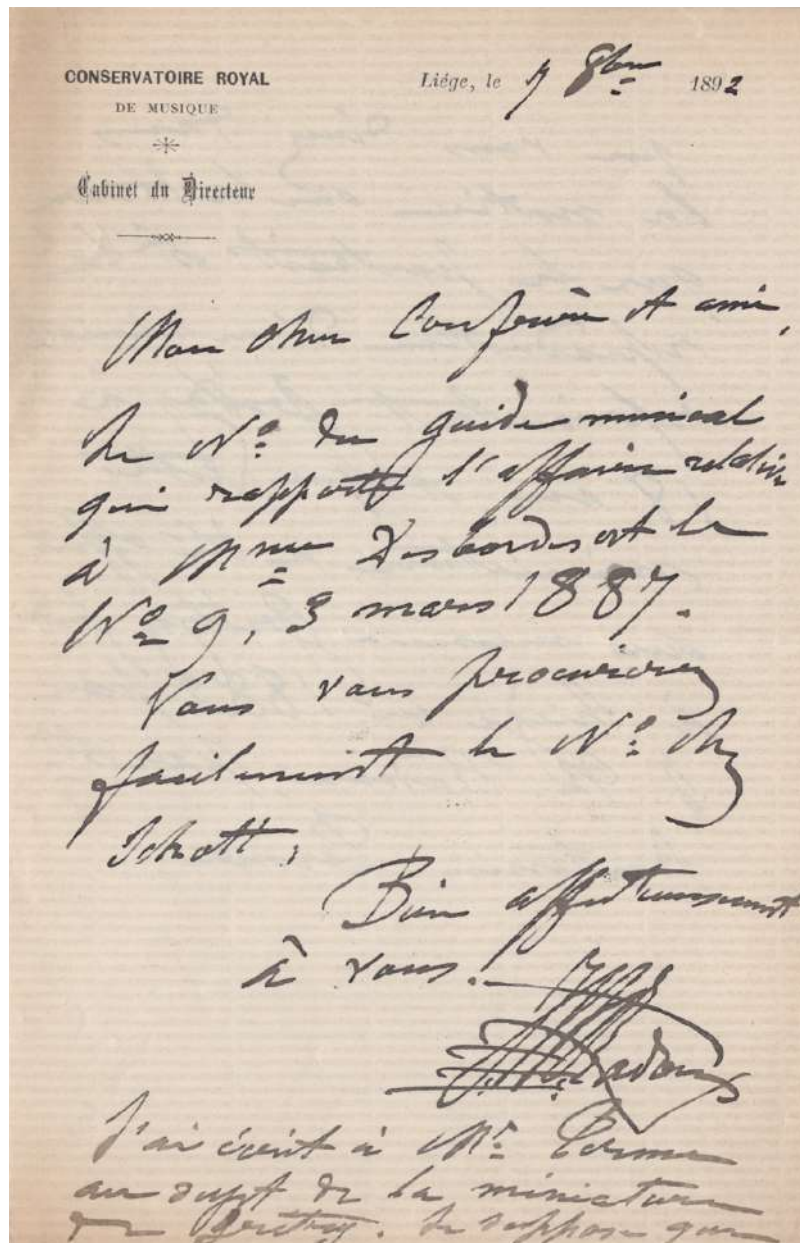 CONSERVATOIRE ROYAL
DE MUSIQUE
Cabinet du Directeur
Liége, le 7 8bre 1892
Mon cher Confrère et ami,
Le Nº du guide musical
qui rapporte l'affaire relative
à Mme Desbordes est le
Nº 9, 3 mars 1887.
Vous vous procurerez
facilement le Nº chez
Schott.
Bien affectueusement
à vous.
Radoux
J'ai écrit à Mr
au sujet de la miniature
de Grétry. Je suppose que